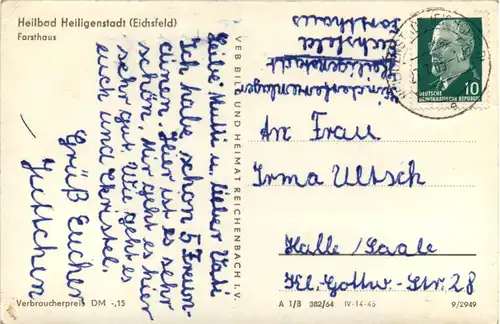 Heilbad Heiligenstadt (Eichsfeld)
Forsthaus
Liebe Mutti u. lieber Vati
Ich habe schon 5 Freun-
dinen. Hier ist es sehr
schön. Mir geht es hier
sehr gut. Wie geht es
euch und Christel.
Grüß Eucher
— Juttchen
VEB BILD UND HEIMAT REICHENBACH I. V.
Kinderferienlager
Heiligenstadt
Eichsfeld
Forsthaus
DEUTSCHE
DEMOKRATISCHE REPUBLIK
10
An Frau
Irma Ultsch
Halle/Saale
Kl. Gottw.-Str. 28
Verbraucherpreis DM -,15
A 1/B 382/64 IV-14-45
9/2949